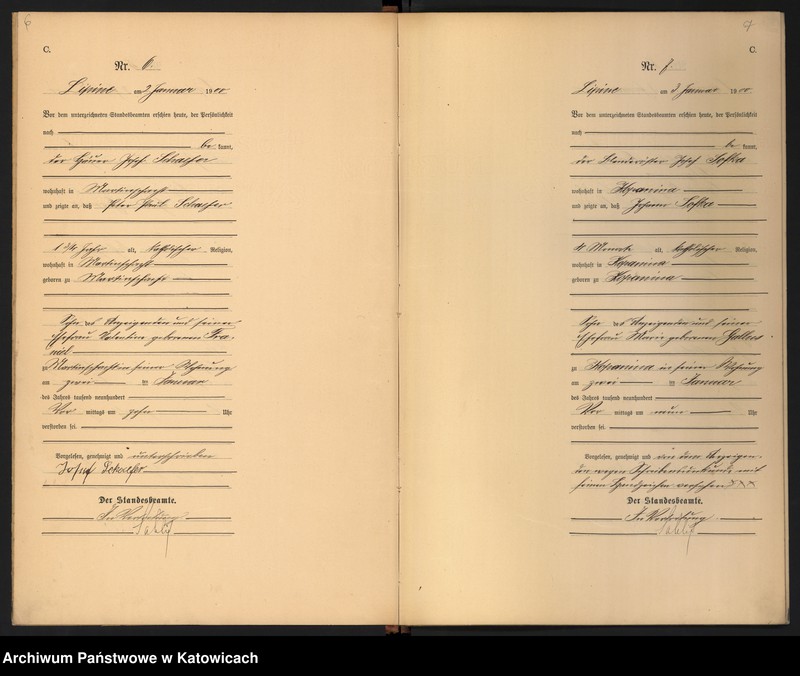 6
C.
Nr. 6.
Lipine am 2 Januar 1900
Vor dem unterzeichneten Standesbeamten erschien heute, der Persönlichkeit
nach
be kannt,
der Häuer Josef
wohnhaft in Martinschacht
und zeigte an, daß Peter Paul
1 3/4 Jahr alt, katholischer Religion,
wohnhaft in Martinschacht
geboren zu Martinschacht
Sohn des Anzeigenden und seiner
Ehefrau Valentine geborenen
zu Martinschacht in seiner Wohnung
am zwei ten Januar
des Jahres tausend neunhundert
Vor mittags um zehn Uhr
verstorben sei.
Vorgelesen, genehmigt und unterschrieben
Josef
Der Standesbeamte.
In Vertretung
7
C.
Nr. 7.
Lipine am 3 Januar 1900
Vor dem unterzeichneten Standesbeamten erschien heute, der Persönlichkeit
nach
be kannt,
der Josef Sofka
wohnhaft in Kopanina
und zeigte an, daß Johann Sofka
4 Monate alt, katholischer Religion,
wohnhaft in Kopanina
geboren zu Kopanina
Sohn des Anzeigenden und seiner
Ehefrau Marie geborenen
zu Kopanina in seiner Wohnung
am zwei ten Januar
des Jahres tausend neunhundert
Vor mittags um neun Uhr
verstorben sei.
Vorgelesen, genehmigt und von dem Anzeigen-
den wegen Schreibensunkunde mit
seinem Handzeichen versehen XXX
Der Standesbeamte.
In Vertretung
Archiwum Państwowe w Katowicach